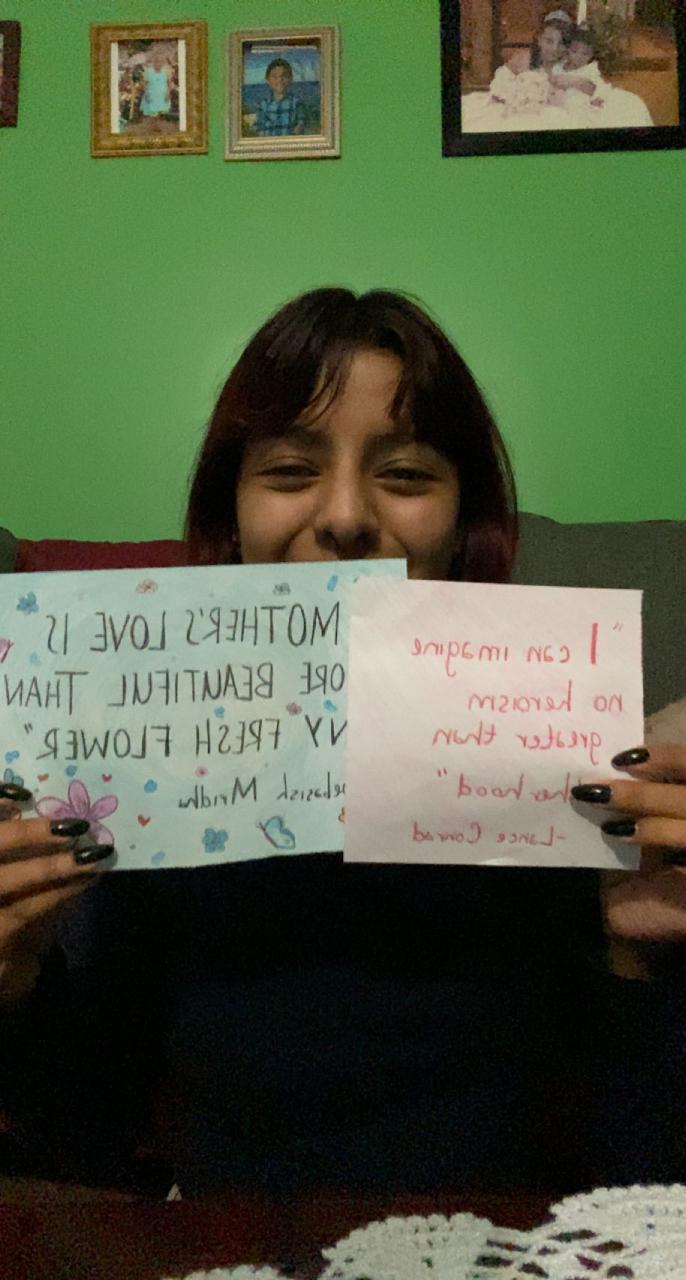 MOTHER'S LOVE IS
ORE BEAUTIFUL THAN
NY FRESH FLOWER"
ebasish Mridha
"I can imagine
no heroism
greater than
therhood"
-Lance Conrad